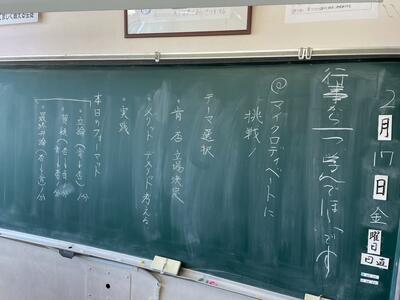 2月17日金曜日
日直
行事から一つ学んでほしいです
◎マイクロディベートに
挑戦!
テーマ選択
・肯否 立場決定
・メリット デメリット 考える
・実践
本日のフォーマット
・立論
・質疑
・最終弁論